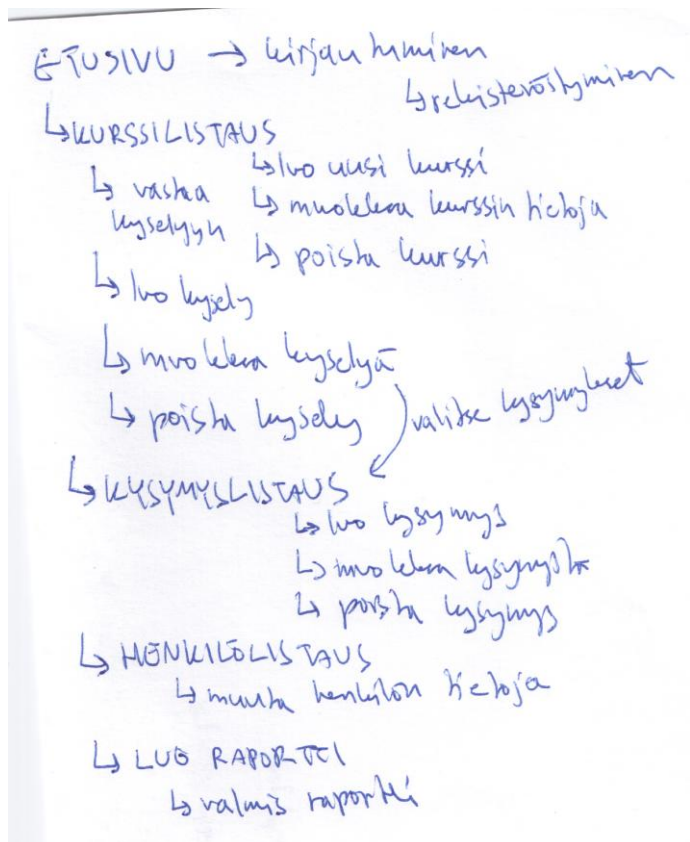 ETUSIVU → kirjautuminen
↳ rekisteröityminen
↳ KURSSILISTAUS
↳ luo uusi kurssi
↳ vastaa kyselyyn
↳ muokkaa kurssin tietoja
↳ poista kurssi
↳ luo kysely
↳ muokkaa kyselyä
↳ poista kysely
valitse kysymykset
↳ KYSYMYSLISTAUS
↳ luo kysymys
↳ muokkaa kysymystä
↳ poista kysymys
↳ HENKILÖLISTAUS
↳ muuta henkilön tietoja
↳ LUO RAPORTTI
↳ valmis raportti